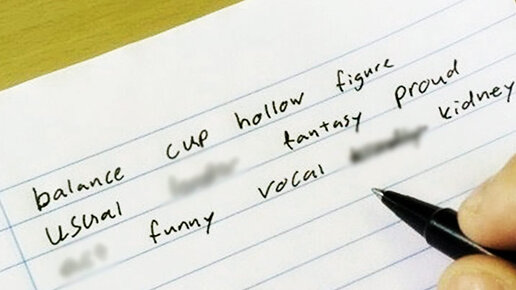 balance cup hollow figure
usual fantasy proud
funny vocal kidney